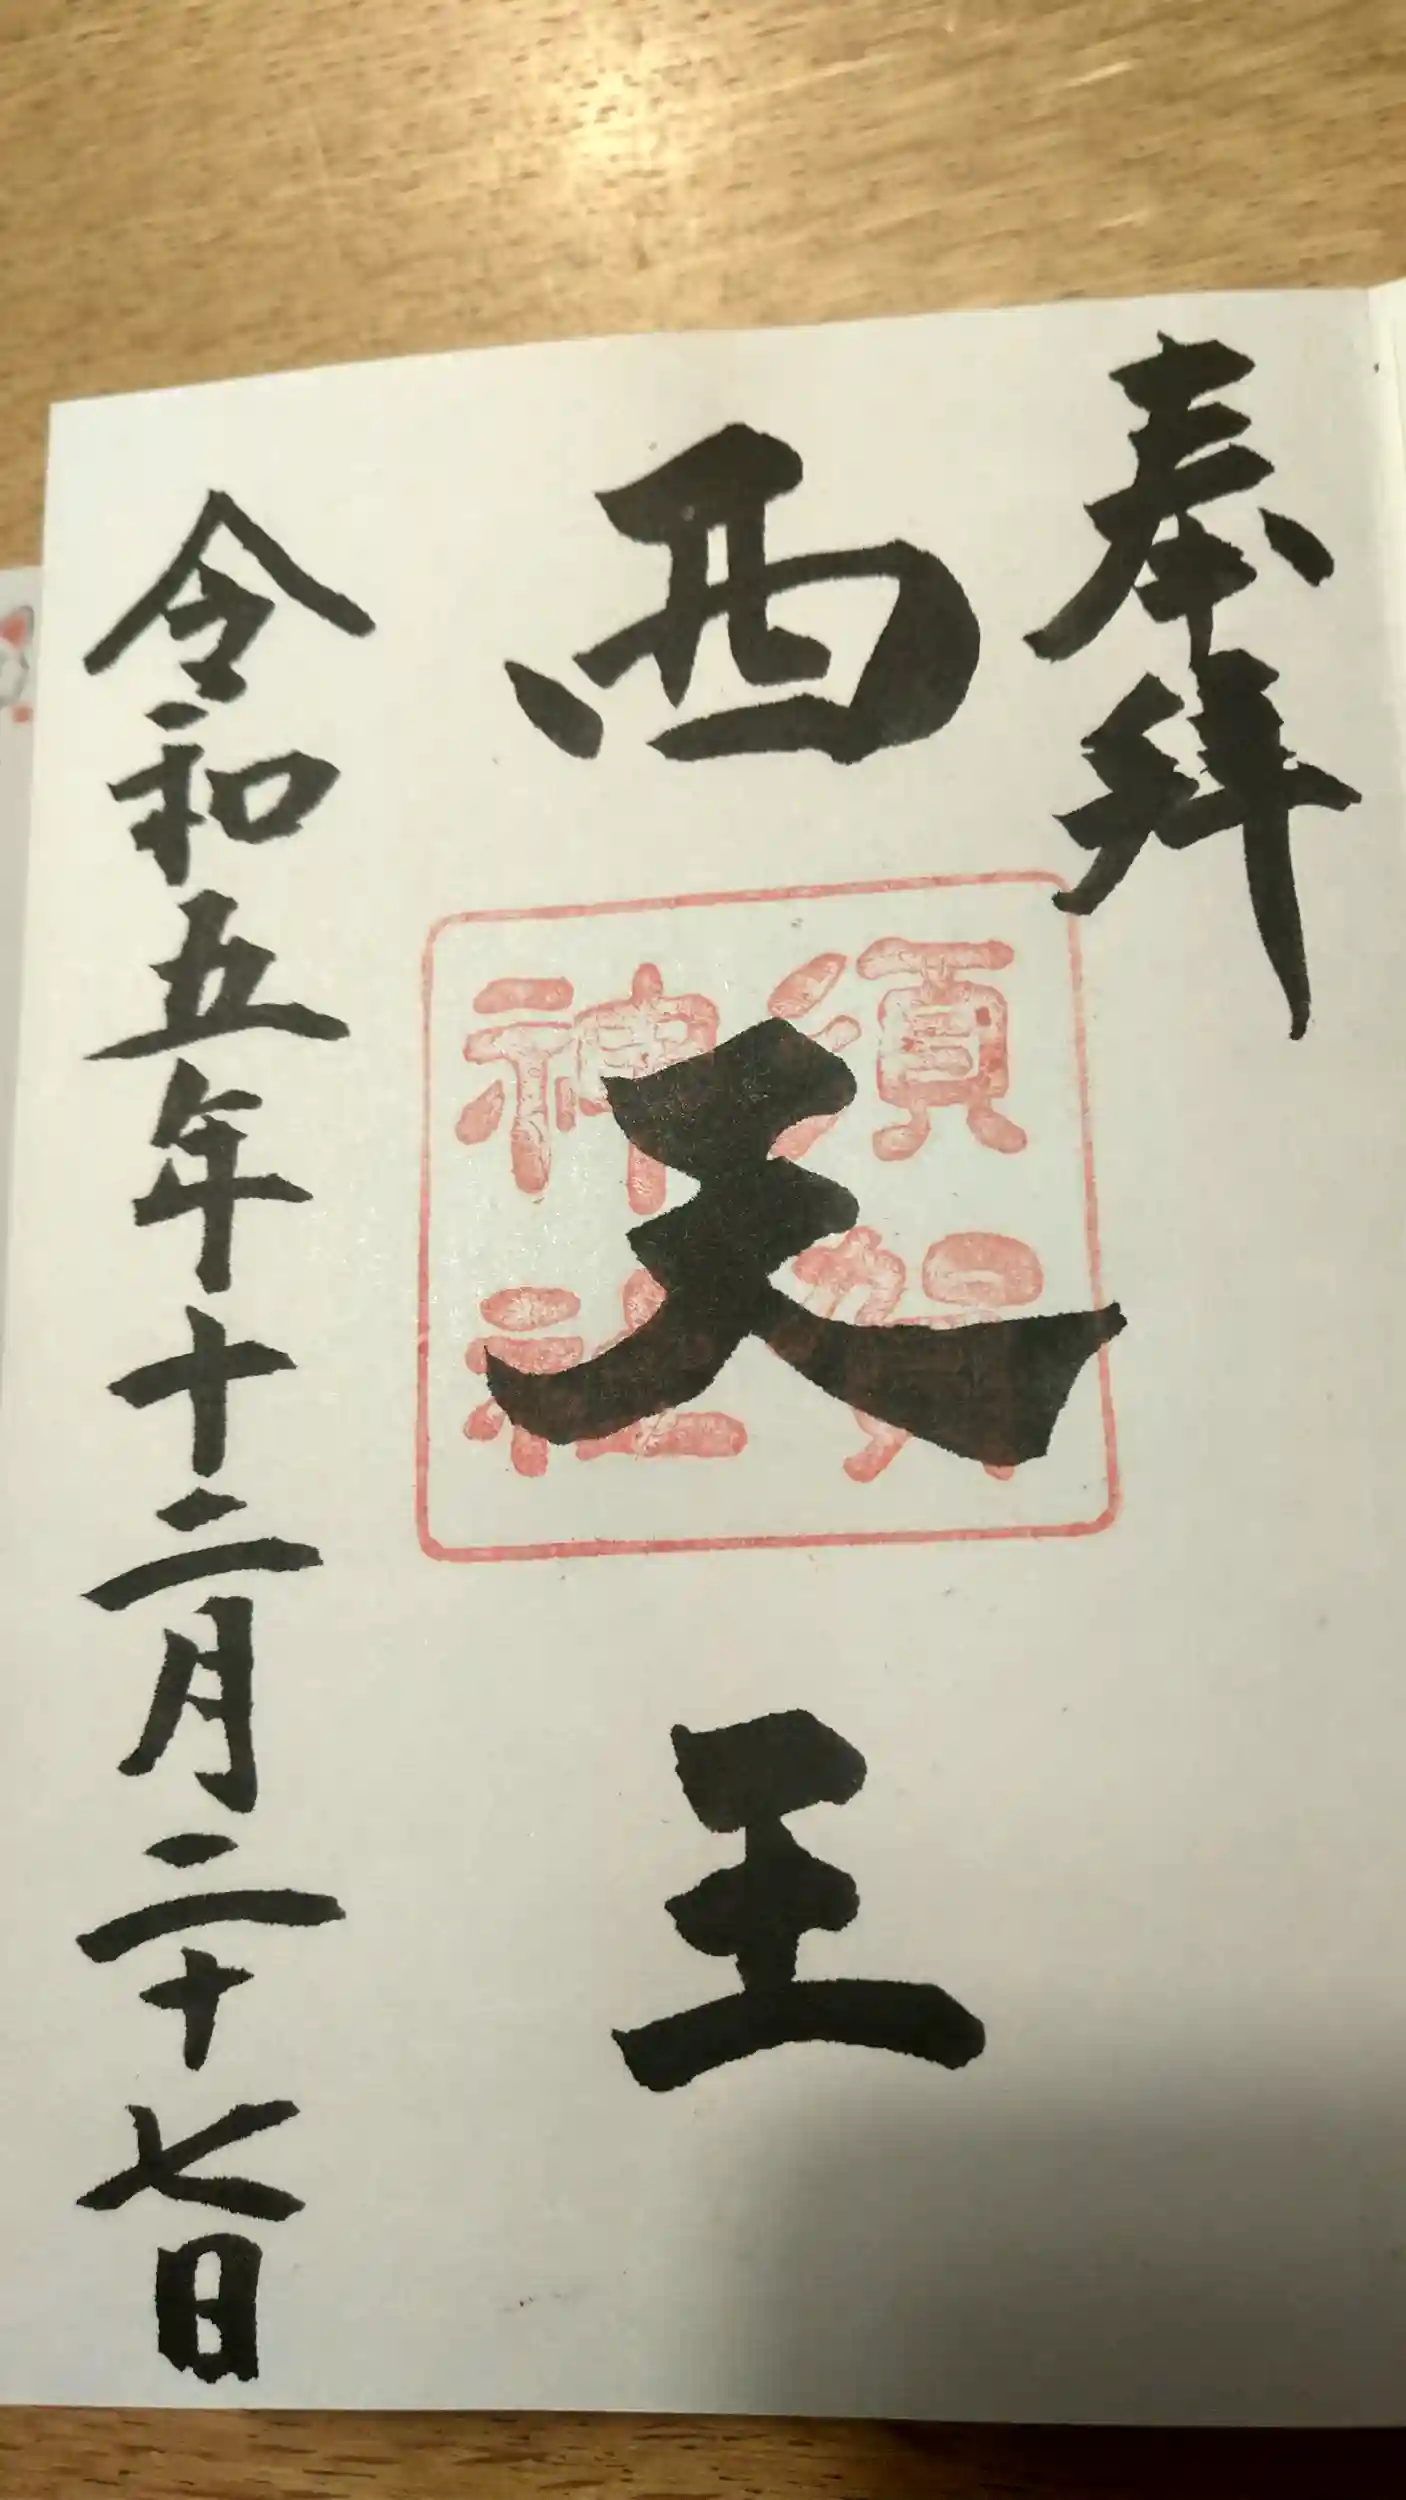 奉拝
西天王
須賀
神社
令和五年十二月二十七日